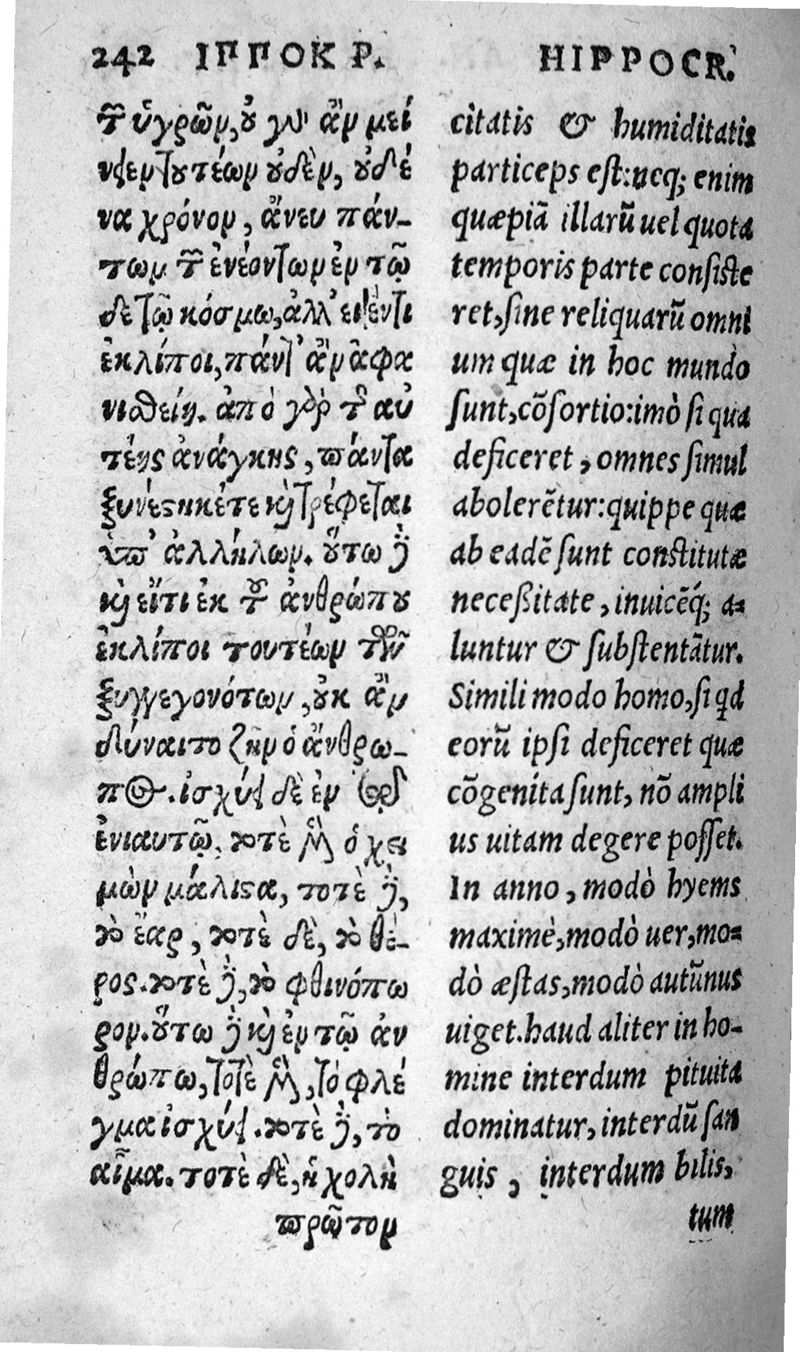 242 ΙΠΠΟΚΡ.
τῶν ὑγρῶν, οὐ γὰρ ἂν μεί
νειεν τουτέων οὐδὲν, οὐδέ
να χρόνον, ἄνευ πάν-
των τῶν ἐνεόντων ἐν τῷ
δε τῷ κόσμω, ἀλλ' εἰ ἕν τι
ἐκλίποι, πάντ' ἂν ἀφα
νισθείη. ἀπὸ γὰρ τ αὐ
τέης ἀνάγκης, πάντα
ξυνέστηκέ τε καὶ τρέφεται
ὑπ' ἀλλήλων. οὕτω δὲ
καὶ εἴ τι ἐκ τοῦ ἀνθρώπου
ἐκλίποι τουτέων τῶν
ξυγγεγονότων, οὐκ ἂν
δύναιτο ζῆν ὁ ἄνθρω-
πος. ἰσχύει δὲ ἐν
ἐνιαυτῷ, τοτὲ μὲν ὁ χει
μὼν μάλιστα, τοτὲ δὲ,
τὸ ἔαρ, τοτὲ δὲ, τὸ θέ-
ρος. τοτὲ δὲ, τὸ φθινόπω
ρον. οὕτω δὲ καὶ ἐν τῷ ἀν
θρώπω, τοτὲ μὲν, τὸ φλέ
γμα ἰσχύει. τοτὲ δὲ, τὸ
αἷμα. τοτὲ δὲ, ἡ χολὴ
πρῶτον
HIPPOCR.
citatis & humiditatis
particeps est: neq; enim
quæpiã illarũ uel quota
temporis parte consiste
ret, sine reliquarũ omni
um quæ in hoc mundo
sunt, cõsortio: imò si qua
deficeret, omnes simul
abolerẽtur: quippe quæ
ab eadẽ sunt constitutæ
necessitate, inuicẽq́; a-
luntur & substentãtur.
Simili modo homo, si qd
eorũ ipsi deficeret quæ
cõgenita sunt, nõ ampli
us uitam degere posset.
In anno, modò hyems
maximè, modò uer, mo-
dò æstas, modò autũnus
uiget. haud aliter in ho-
mine interdum pituita
dominatur, interdũ san
guis, interdum bilis,
tum